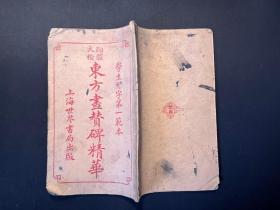 學生習字第一範本
陶齋大楷
東方畫贊碑精華
上海世界書局出版